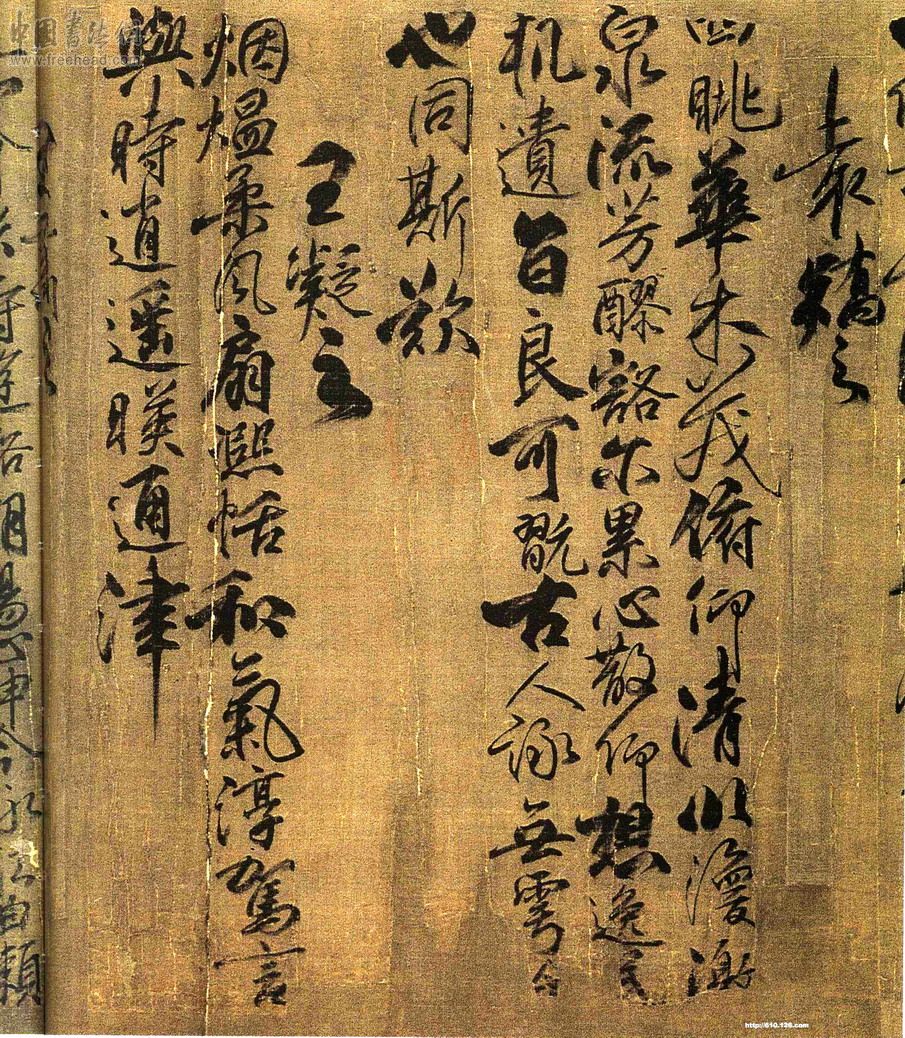 袁嶠之
四眺華木茂俯仰清川渙激
泉流芳醪豁尓累心散仰想逸民
机遺音良可翫古人詠無雩今
也同斯歎
王凝之
烟熅柔風扇熙恬和氣淳駕言
與時逍遥暎通津
中国书法网
www.freehead.com
http://610.126.com